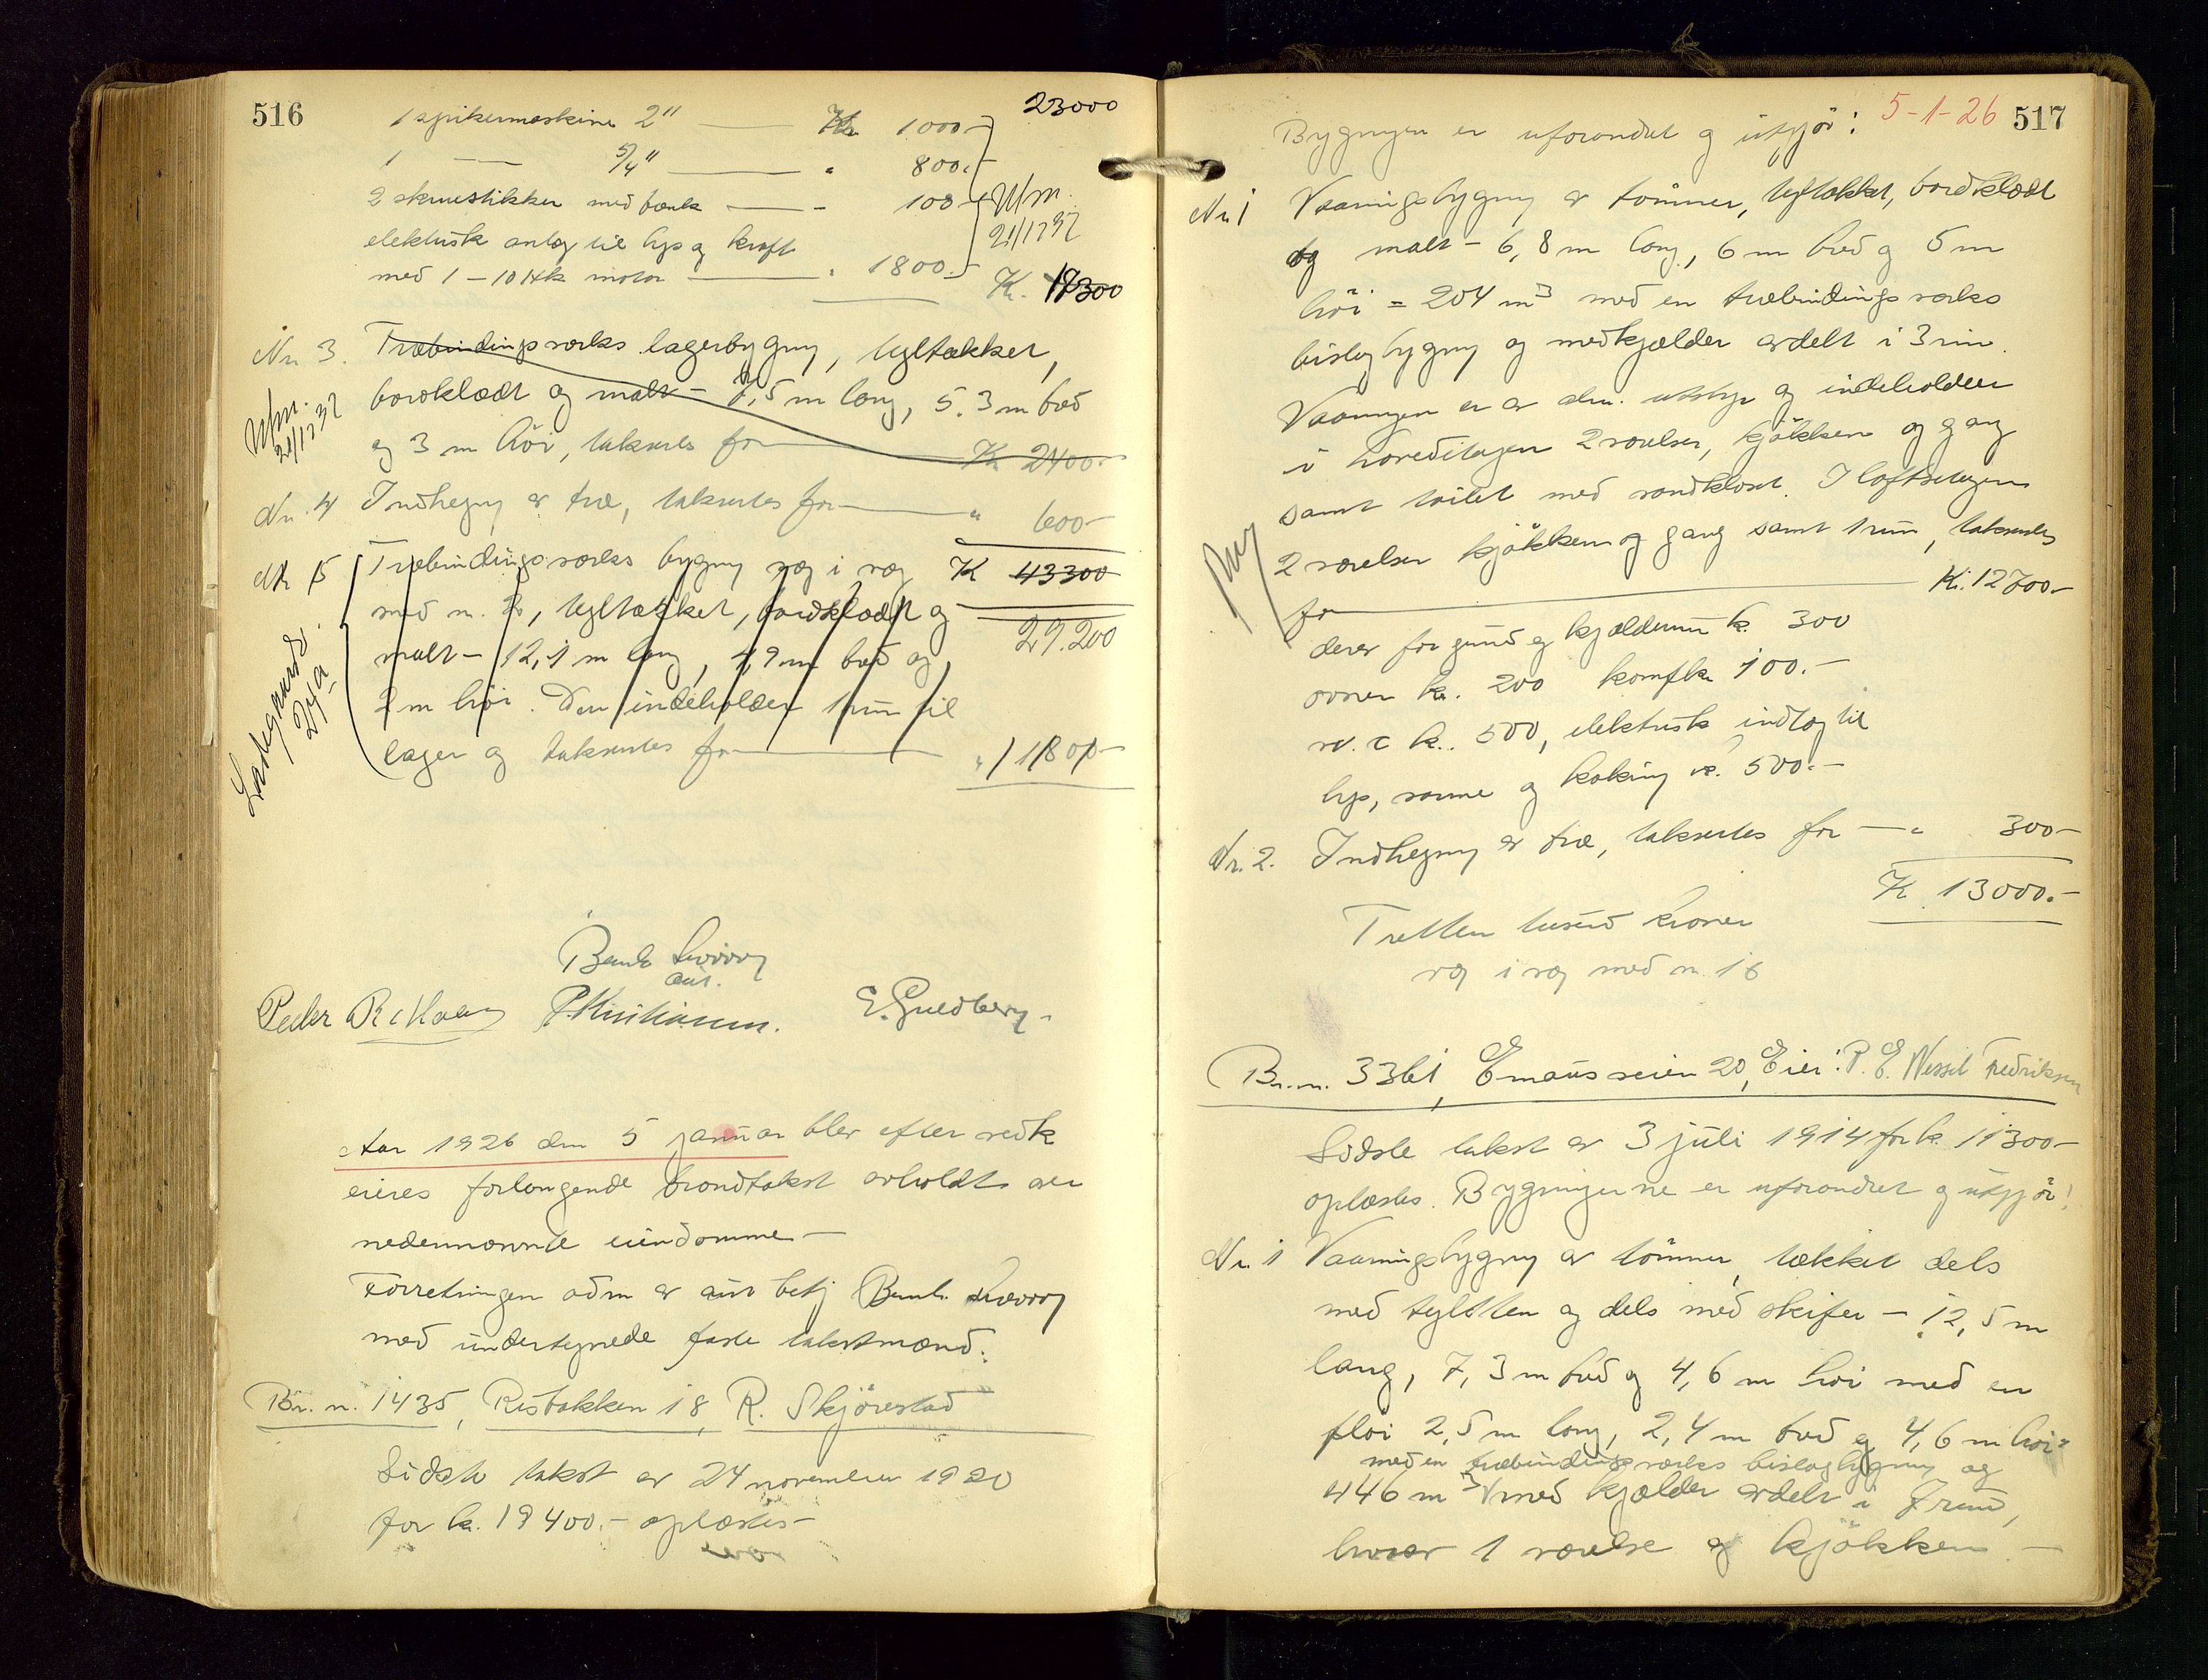 516
23000
1 spikermaskine 2" Kr 1000.-
1 — 5/4" " 800.-
2 skruestikker med bænk - 100.-
Utm.
21/12 32
elektrisk anlæg til lys og kraft
med 1 - 10 Hk motor " 1800.-
Kr. 17300
Nr. 3. Træbindingsverks lagerbygning, tegltækket,
bordklædt og malt - 7,5 m lang, 5.3 m bred
Utm.
21/12 32
og 3 m höi, takseres for Kr 2400.-
Nr. 4 Indhegning av træ, takseres for " 600.-
Nr 5 Træbindingsverks bygning væg i væg K 43300
med nr. 2, tegltækket, bordklædt og
29.200
malt - 12,1 m lang, 4,9 m bred og
2 m höi. Den indeholder 1 rum til
lager og takseres for " 1180.-
Ladegaardsv.
27 a
Bernh.
aut.
Peder P. Kristiansen. E. Guldberg.
Aar 1926 den 5 januar blev efter vedk
eieres forlangende brandtakst avholdt over
nedennævnte eiendomme -
Forretningen adm av aut betj Bernh.
med undertegnede faste takstmænd:
Br. nr. 1435, Risbakken 18, R. Skjørestad
Sidste takst av 24 november 1920
for kr. 19400.- oplæstes -
5-1-26
517
Bygningen er uforandret og utgjör:
Nr 1 Vaaningsbygning av tömmer, tegltækket, bordklædt
og malt - 6,8 m lang, 6 m bred og 5 m
höi = 204 m³ med en træbindingsverks
bislagbygning og med kjælder avdelt i 3 rum.
Vaaningen er av alm. utstyr og indeholder
i hovedetagen 2 værelser, kjökken og gang
samt toilet med vandkloset. I loftsetagen
2 værelser kjökken og gang samt 1 rum, takseres
for Kr. 12700.-
derav for grund og kjælderrum kr. 300
ovner kr. 200 komfkr 100.-
w. c kr. 500, elektrisk indlæg til
lys, varme og kokning kr. 500.-
Nr. 2. Indhegning av træ, takseres for " 300.-
K 13000.-
Tretten tusind kroner
væg i væg med nr. 16
Br. nr. 3361, Emausveien 20, Eier: P. E. Wessel Fredriksen
Sidste takst av 3 juli 1914 for kr. 11300.-
oplæstes. Bygningerne er uforandret og utgjör:
Nr. 1 Vaaningsbygning av tömmer, tækket dels
med teglsten og dels med skifer - 12,5 m
lang, 7,3 m bred og 4,6 m höi med en
flöi 2,5 m lang, 2,4 m bred og 4,6 m höi =
med en træbindingsverks bislagbygning og
446 m³ med kjælder avdelt i 7 rum,
hvorav 1 værelse og kjökken. -